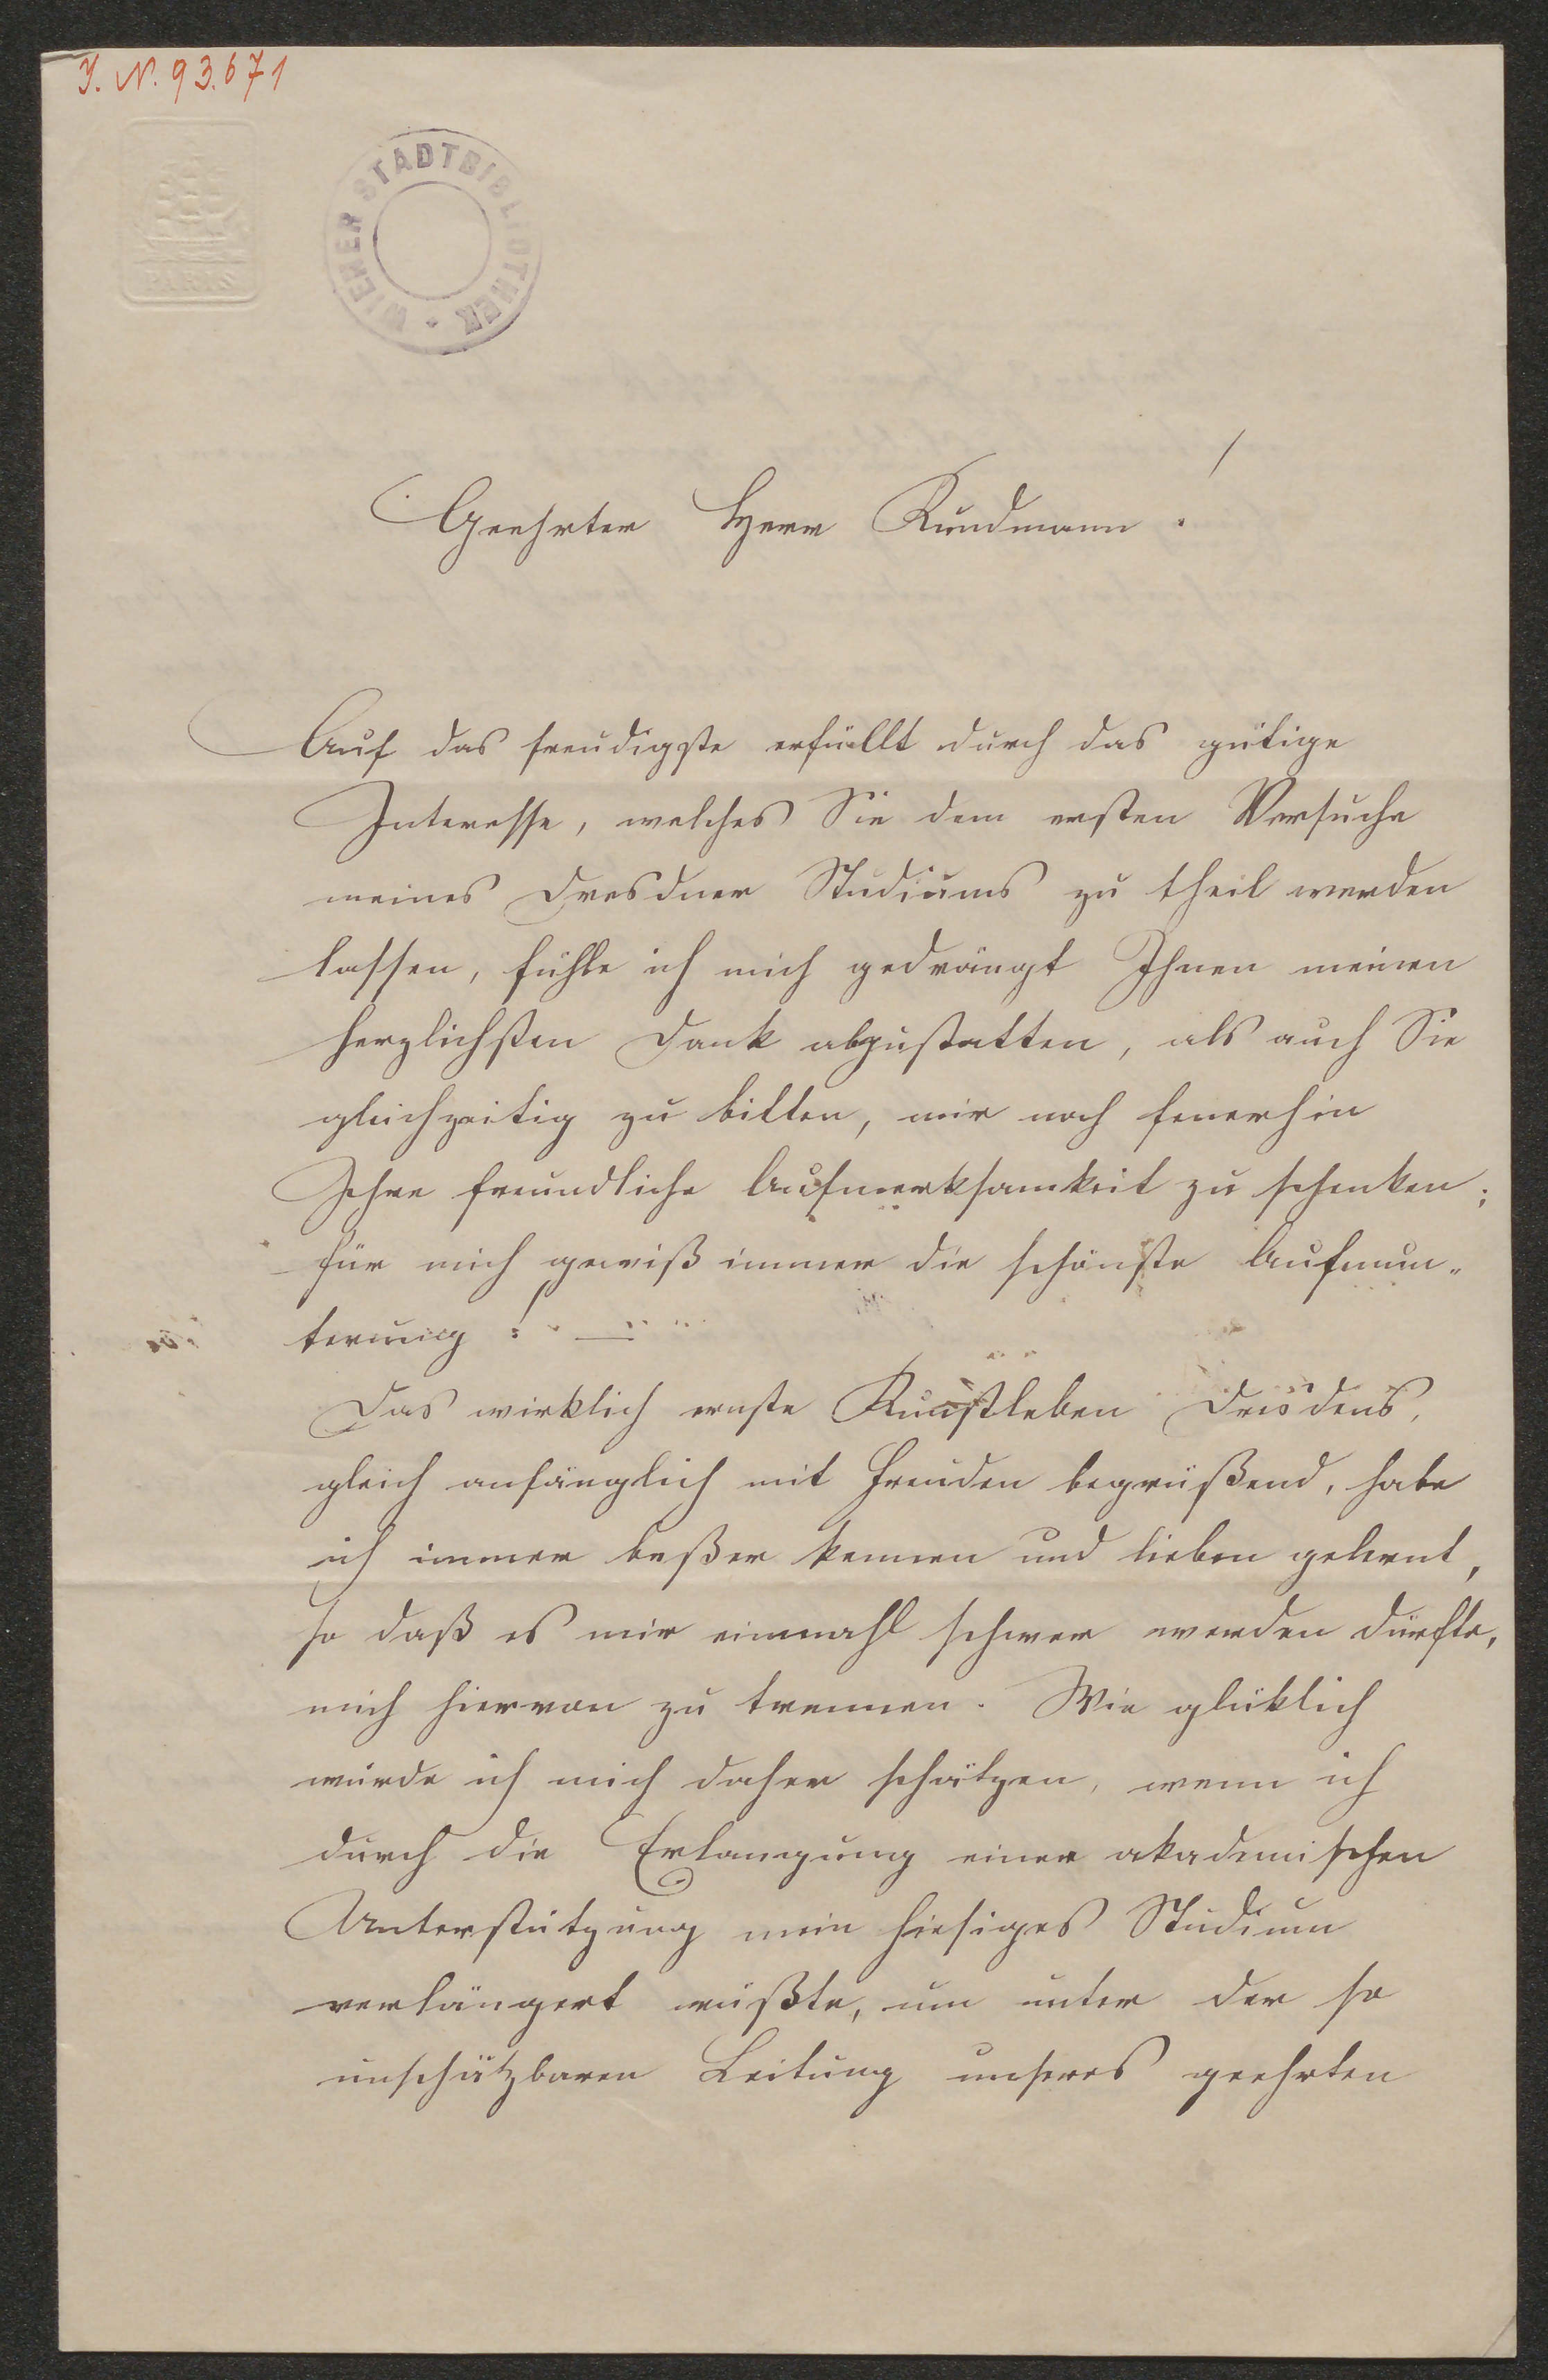 J. N. 93.671
PARIS
WIENER STADTBIBLIOTHEK
Geehrter Herr Kundmann!
Auf das freudigste erfüllt durch das gütige
Interesse, welches Sie dem ersten Versuche
meines Dresdner Studiums zu theil werden
lassen, fühle ich mich gedrängt Ihnen meinen
herzlichsten Dank abzustatten, als auch Sie
gleichzeitig zu bitten, mir noch fernerhin
Ihre freundliche Aufmerksamkeit zu schenken;
für mich gewiß immer die schönste Aufmun-
terung! —
Das wirklich ernste Kunstleben Dresdens,
gleich anfänglich mit Freuden begrüßend, habe
ich immer beßer kennen und lieben gelernt,
so daß es mir einmahl schwer werden dürfte,
mich hiervon zu trennen. Wie glüklich
würde ich mich daher schätzen, wenn ich
durch die Erlangung einer akademischen
Unterstützung mein hiesiges Studium
verlängert wüßte, um unter der so
unschätzbaren Leitung unseres geehrten